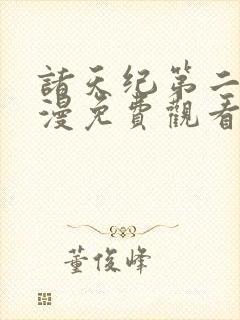 諸天纪第二
漫免費觀看
董俊峰